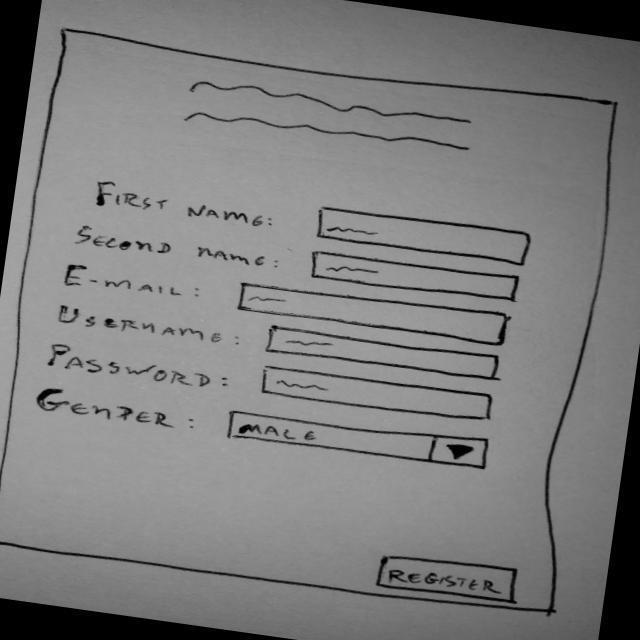 FIRST NAME:
SECOND NAME:
E-MAIL:
USERNAME:
PASSWORD:
GENDER: MALE
REGISTER